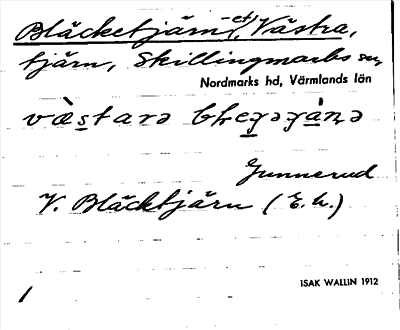 Bläcketjärn -et, Västra,
tjärn, Skillingmarks sn,
Nordmarks hd, Värmlands län
Gunnerud
V. Bläcktjärn (E.k.)
ISAK WALLIN 1912
1